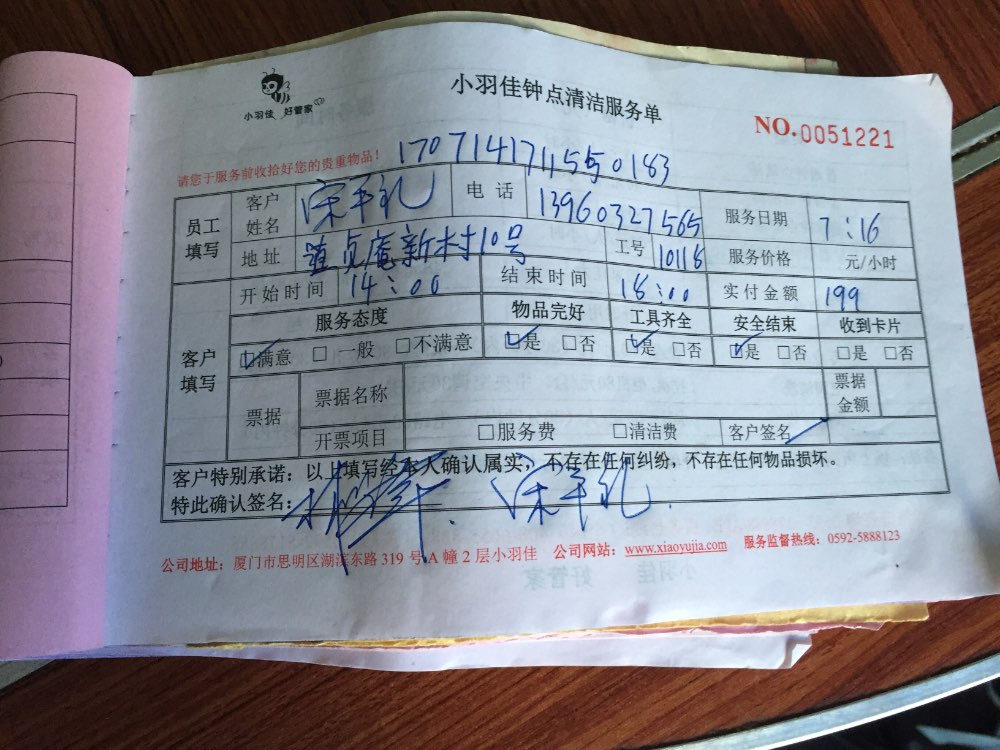 小羽佳 好管家
小羽佳钟点清洁服务单
NO.0051221
请您于服务前收拾好您的贵重物品！
客户姓名 宋平礼 电话 13960327565 服务日期 7:16
员工填写
地址 新村10号 工号 10118 服务价格 元/小时
开始时间 14:00 结束时间 18:00 实付金额 199
服务态度 物品完好 工具齐全 安全结束 收到卡片
客户填写
☑满意 □一般 □不满意 ☑是 □否 ☑是 □否 ☑是 □否 □是 □否
票据 票据名称 票据金额
开票项目 □服务费 □清洁费 客户签名
客户特别承诺：以上填写经本人确认属实，不存在任何纠纷，不存在任何物品损坏。
特此确认签名： 宋平礼
公司地址：厦门市思明区湖滨东路 319 号 A 幢 2 层小羽佳 公司网站：www.xiaoyujia.com 服务监督热线：0592-5888123